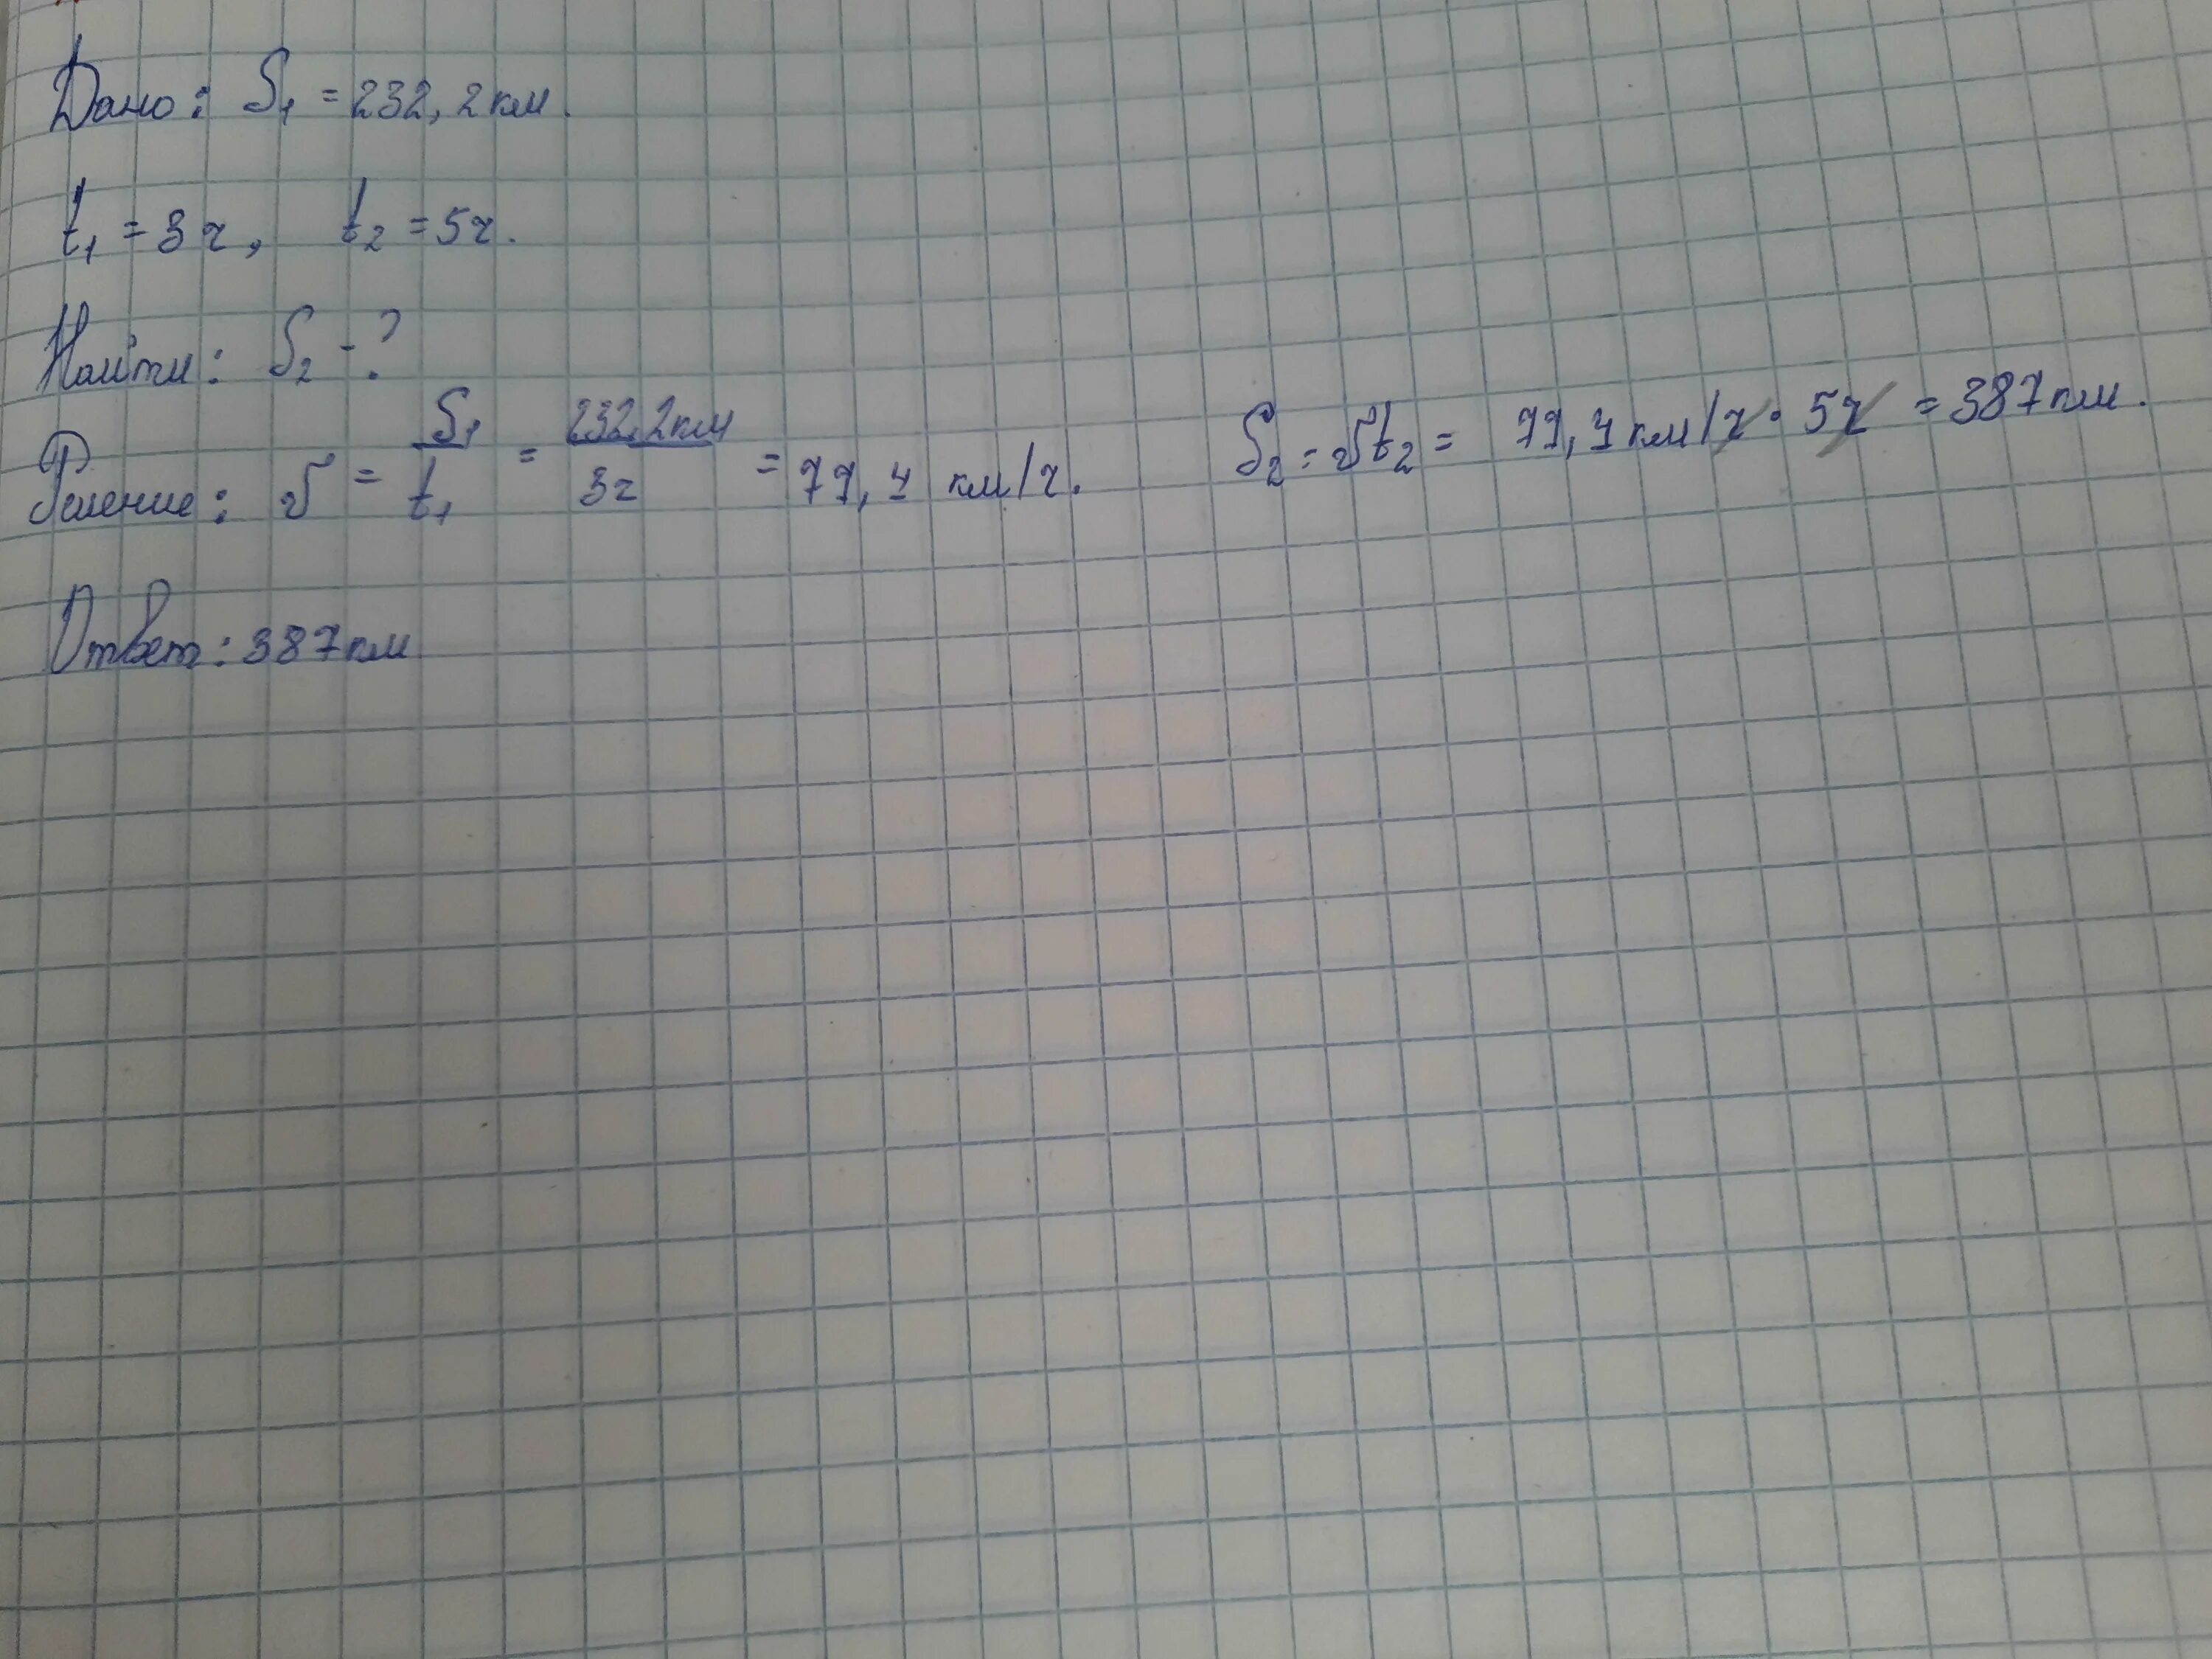 Дано: S₁ = 232,2 км.
t₁ = 3 ч, t₂ = 5 ч.
Найти: S₂ - ?
Решение: v = S₁/t₁ = 232,2 км/3 ч = 77,4 км/ч. S₂ = vt₂ = 77,4 км/ч · 5 ч = 387 км.
Ответ: 387 км